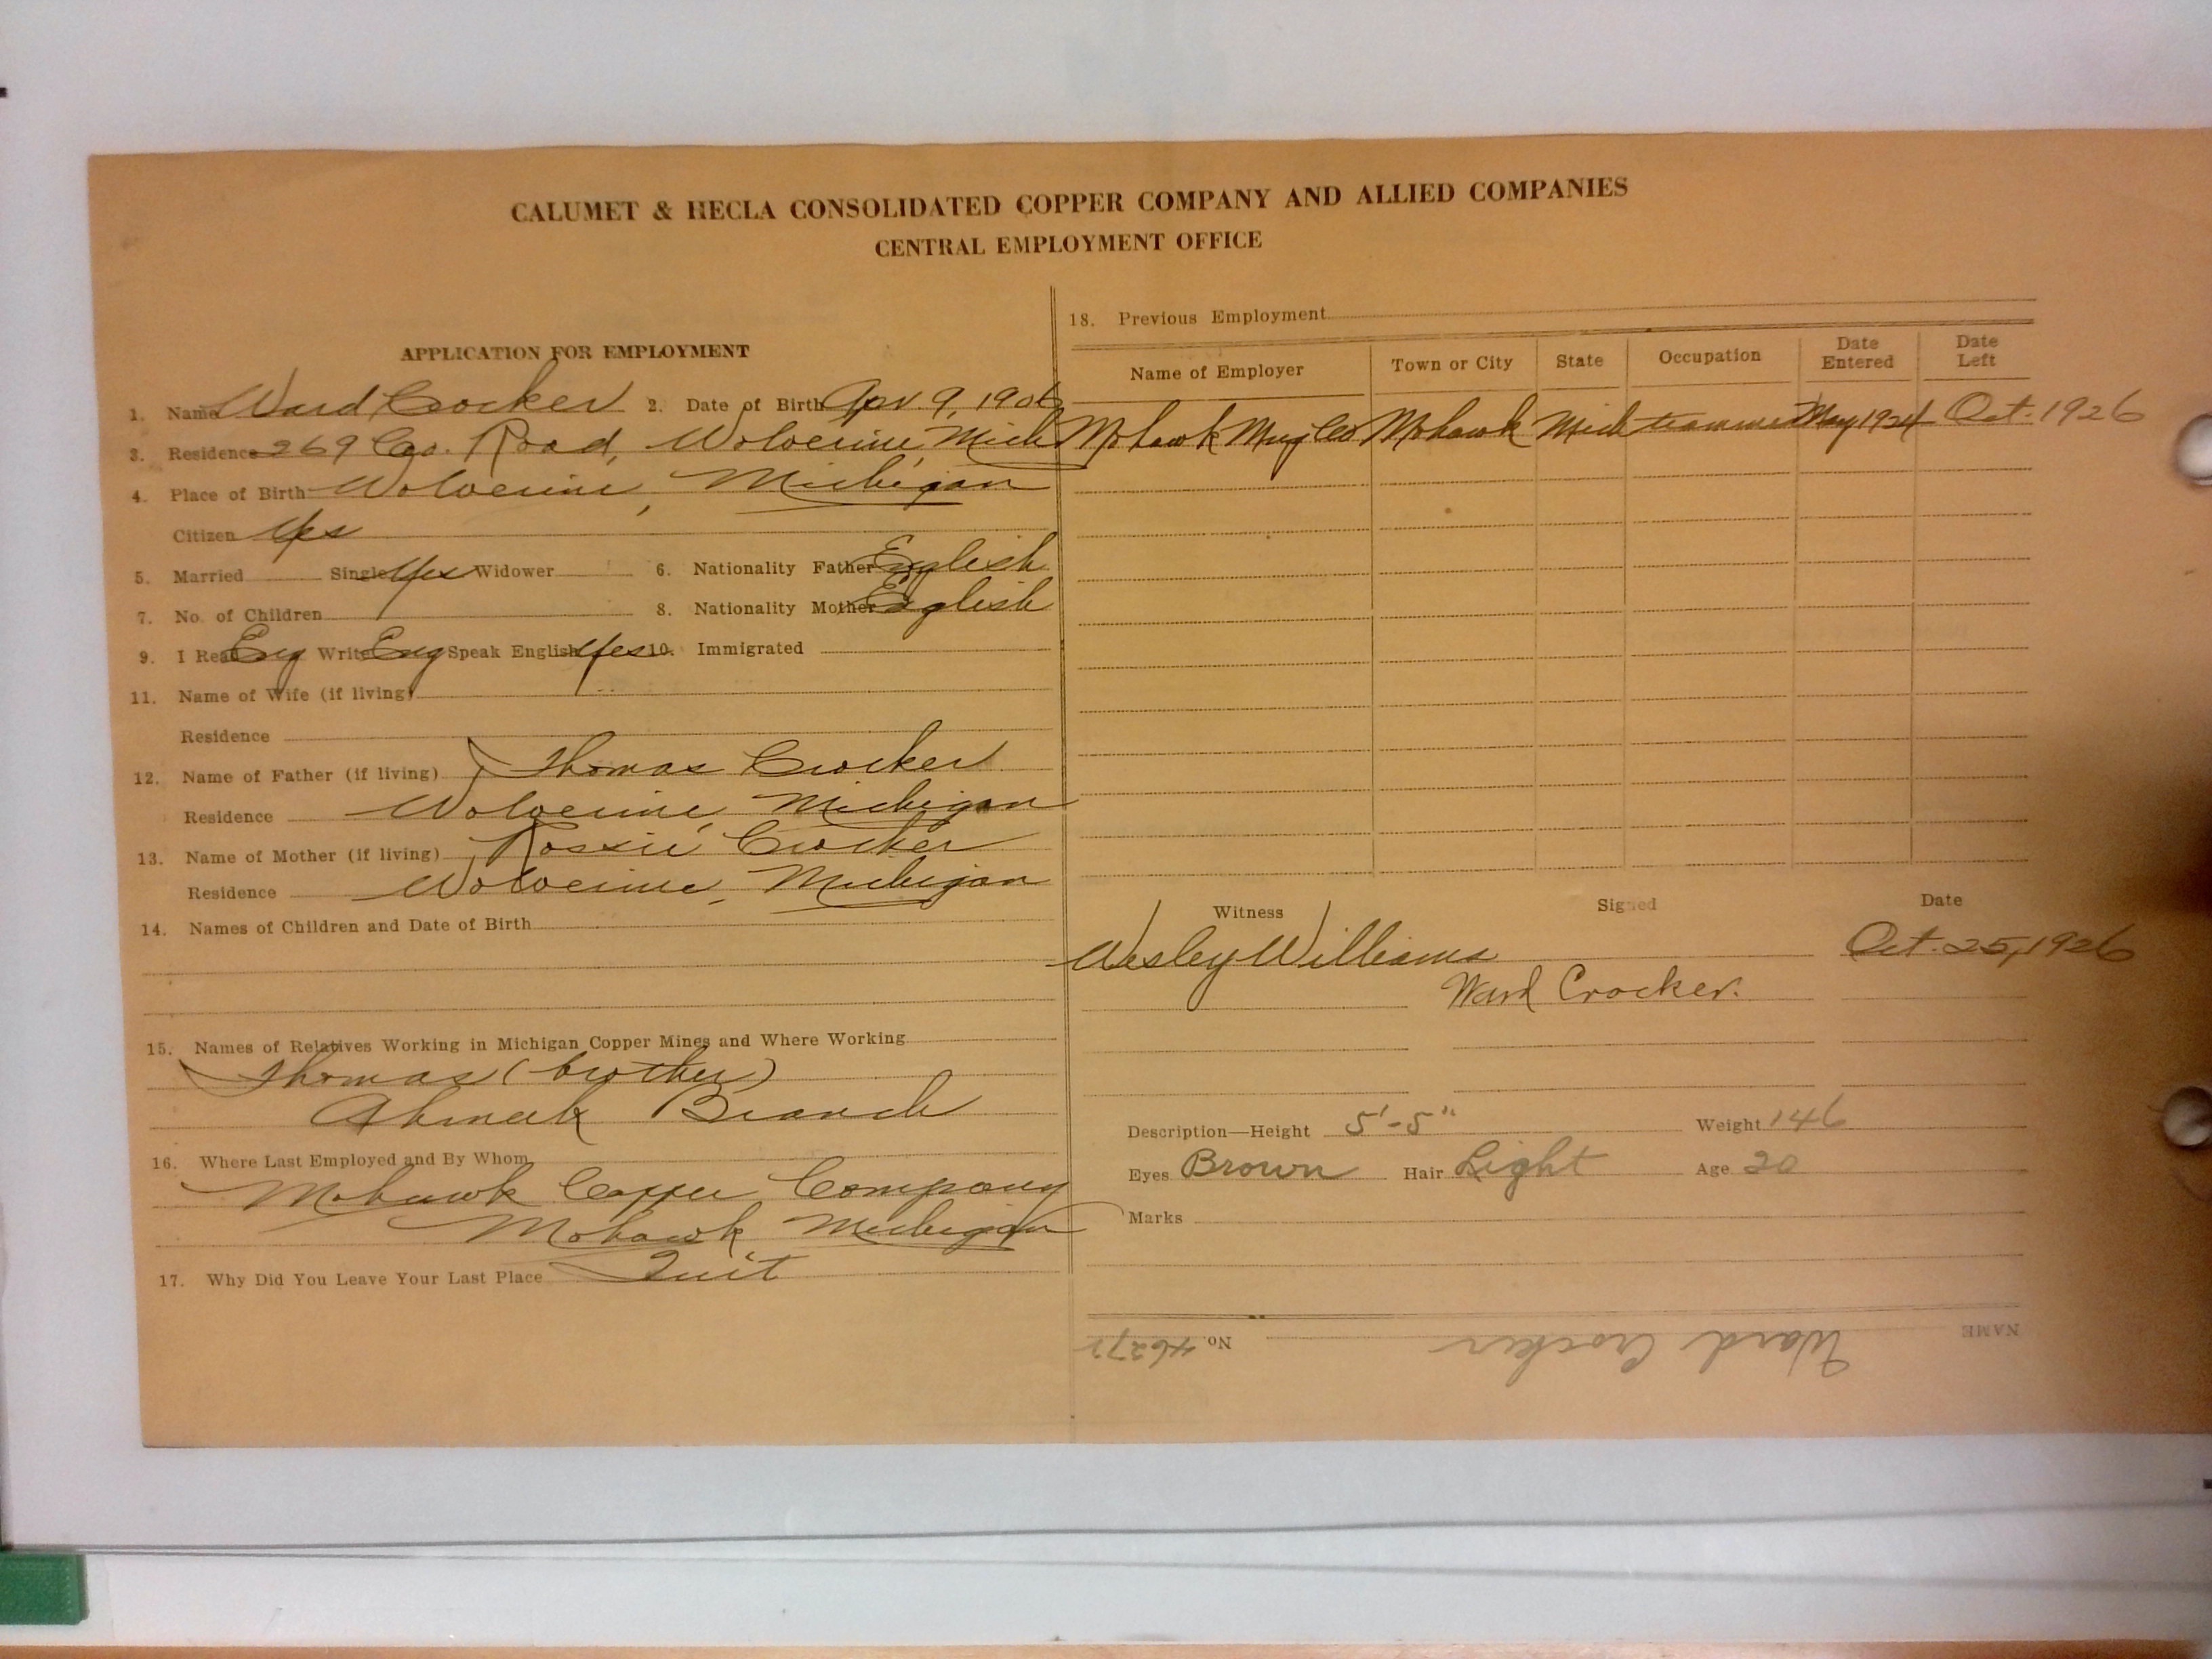 CALUMET & HECLA CONSOLIDATED COPPER COMPANY AND ALLIED COMPANIES
CENTRAL EMPLOYMENT OFFICE
APPLICATION FOR EMPLOYMENT
1. Name Ward Crocker 2. Date of Birth Apr. 9, 1906
3. Residence 269 Co. Road, Wolverine, Mich
4. Place of Birth Wolverine, Michigan
Citizen Yes
5. Married Single Yes Widower 6. Nationality Father English
7. No. of Children 8. Nationality Mother English
9. I Read Eng Write Eng Speak English Yes 10. Immigrated
11. Name of Wife (if living)
Residence
12. Name of Father (if living) Thomas Crocker
Residence Wolverine, Michigan
13. Name of Mother (if living) Rossie Crocker
Residence Wolverine, Michigan
14. Names of Children and Date of Birth
15. Names of Relatives Working in Michigan Copper Mines and Where Working
Thomas (brother)
Ahmeek Branch
16. Where Last Employed and By Whom
Mohawk Copper Company
Mohawk Michigan
17. Why Did You Leave Your Last Place Quit
18. Previous Employment
Name of Employer Town or City State Occupation Date Entered Date Left
Mohawk Mng Co Mohawk Mich trammer May 1924 Oct. 1926
Witness Signed Date
Wesley Williams Oct. 25, 1926
Ward Crocker.
Description—Height 5'-5" Weight 146
Eyes Brown Hair Light Age 20
Marks
NAME Ward Crocker No.